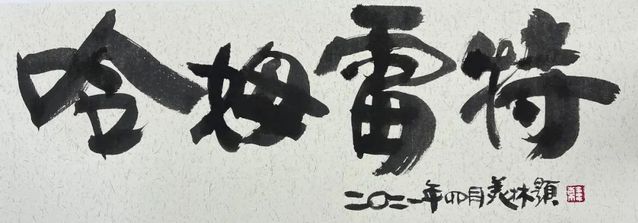 哈姆雷特
二〇二一年四月美林題